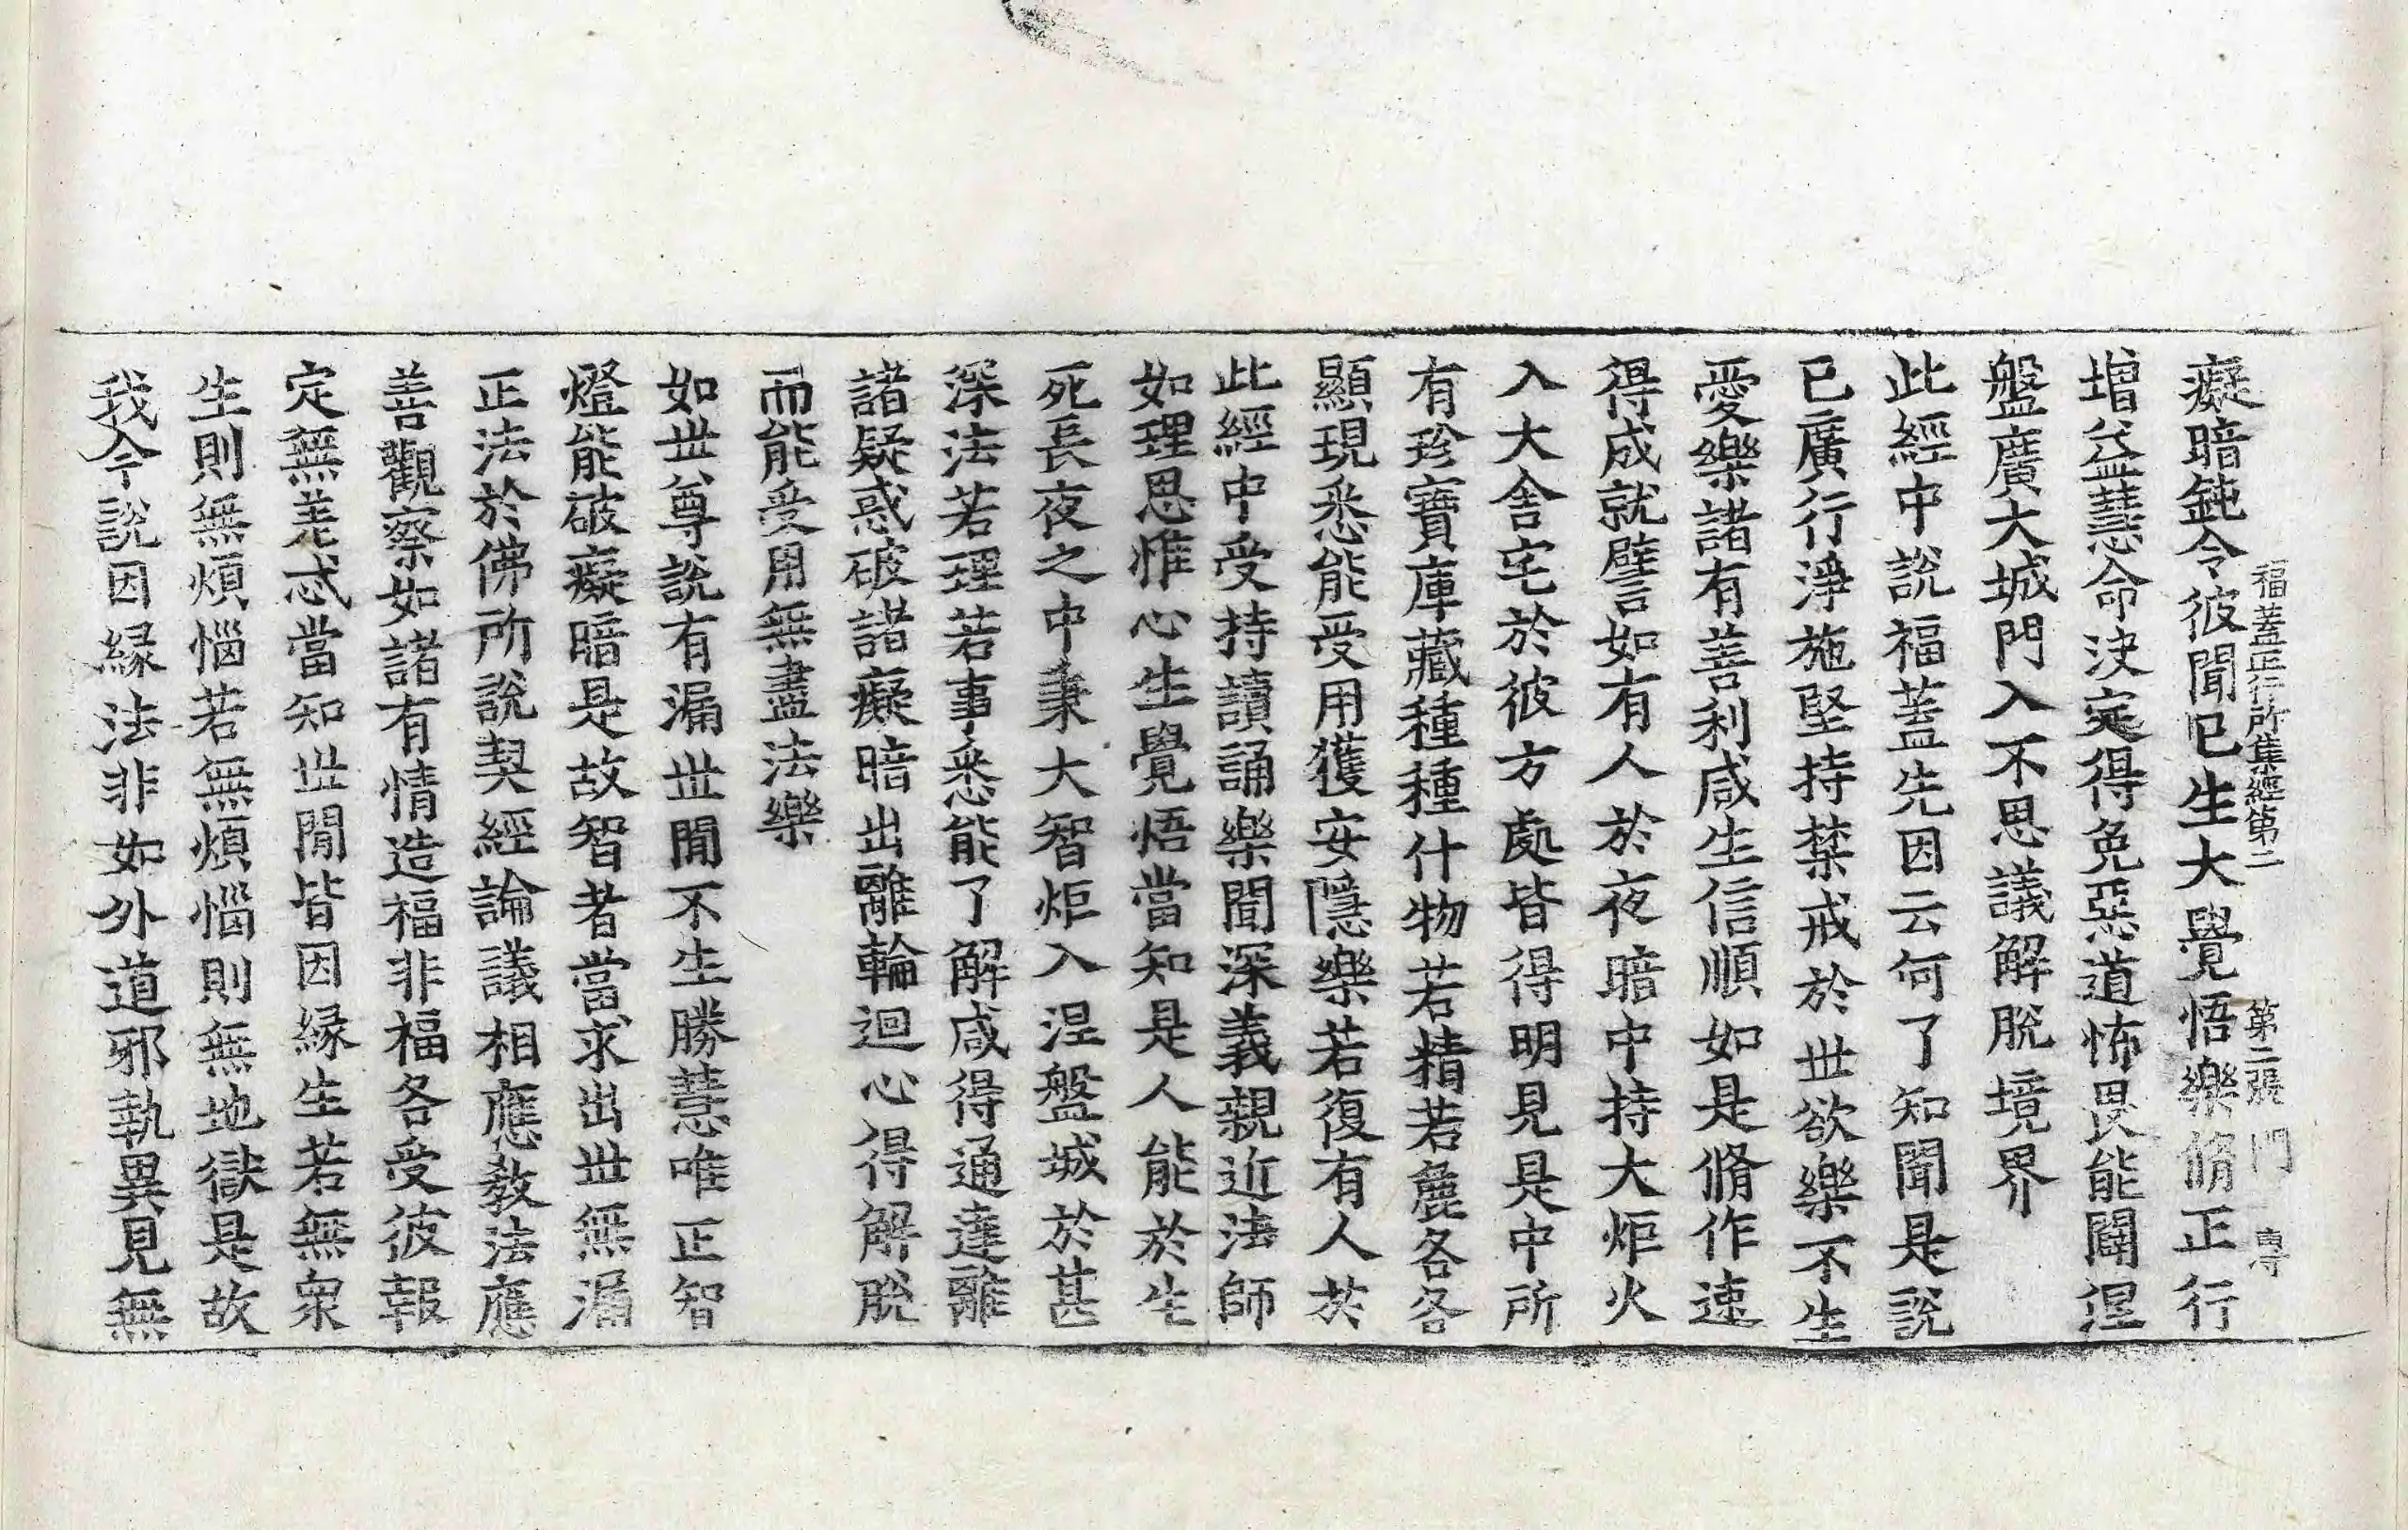 福蓋正行所集經第二　第二張　門　專
癡暗鈍令彼聞已生大覺悟樂脩正行
增益慧命決㝎得免惡道怖畏能闢涅
盤廣大城門入不思議解脫境界
此經中說福蓋先因云何了知聞是說
已廣行淨施堅持禁戒於世欲樂不生
愛樂諸有善利咸生信順如是脩作速
得成就譬如有人於夜暗中持大炬火
入大舍宅於彼方處皆得明見是中所
有珍寶庫藏種種什物若精若麁各各
顯現悉能受用獲安隱樂若復有人於
此經中受持讀誦樂聞深義親近法師
如理思惟心生覺悟當知是人能於生
死長夜之中秉大智炬入涅盤城於甚
深法若理若事悉能了解咸得通達離
諸疑惑破諸癡暗出離輪迴心得解脫
而能受用無盡法樂
如世尊說有漏世閒不生勝慧唯正智
燈能破癡暗是故智者當求出世無漏
正法於佛所說契經論議相應教法應
善觀察如諸有情造福非福各受彼報
定無差忒當知世閒皆因緣生若無衆
生則無煩惱若無煩惱則無地獄是故
我今說因緣法非如外道邪執異見無